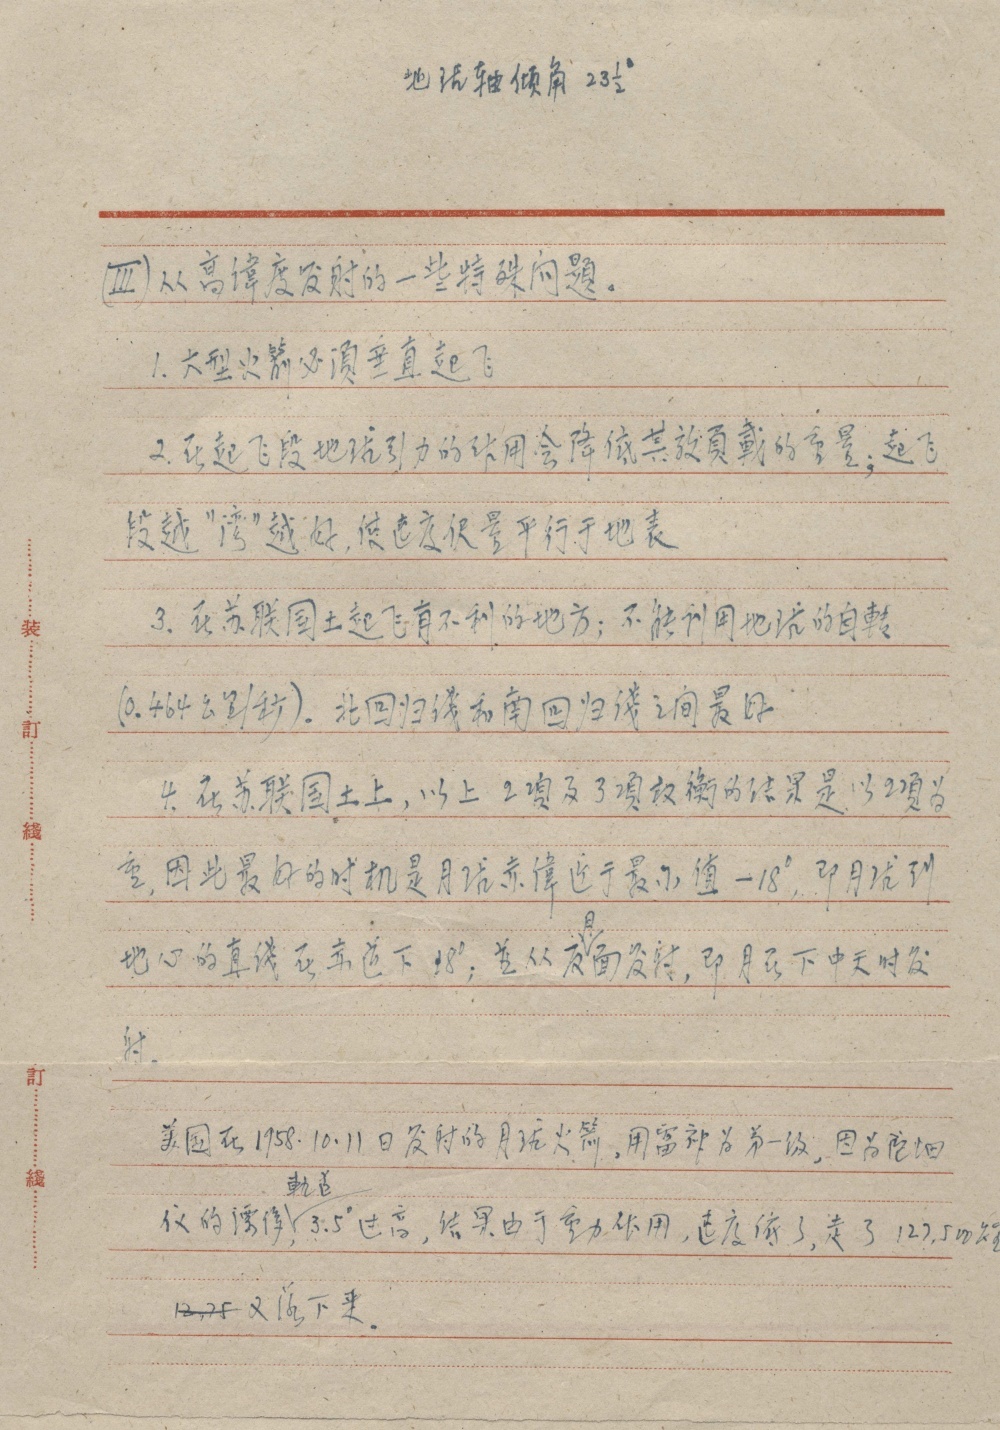 地球轴倾角 23½°
(III) 从高偉度发射的一些特殊问題。
1. 大型火箭必須垂直起飞
2. 在起飞段地球引力的作用会降低其放負載的重量；起飞
段越“湾”越好，使速度尽量平行于地表
3. 在苏联国土起飞有不利的地方；不能利用地球的自轉
(0.464公里/秒)。北回归线和南回归线之间最好
4. 在苏联国土上，以上2項及3項权衡的结果是以2項为
重，因此最好的时机是月球赤偉近于最小值 -18°，即月球到
地心的直线在赤道下 18°；並从背面发射，即月在下中天时发
射。
美国在1958.10.11日发射的月球火箭，用雷神为第一级，因为陀螺
仪的漂偉，軌道3.5°过高，结果由于重力作用，速度低了，走了127,500公里
12,75 又落下来。
装
訂
綫
訂
綫